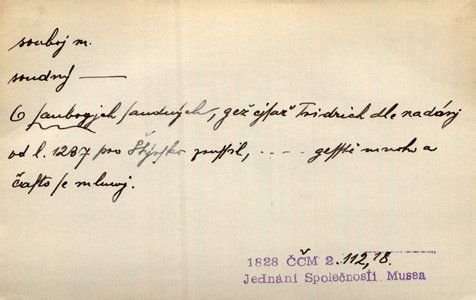 souboj m.
soudný —
O saubogjch saudných, gež cýsař Fridrich dle nadánj
od l. 1237 pro Štýrsko zrussil, - - - - gesstě mnoho a
často se mluwj.
1828 ČČM 2. 112,18.
Jednání Společnosti Musea